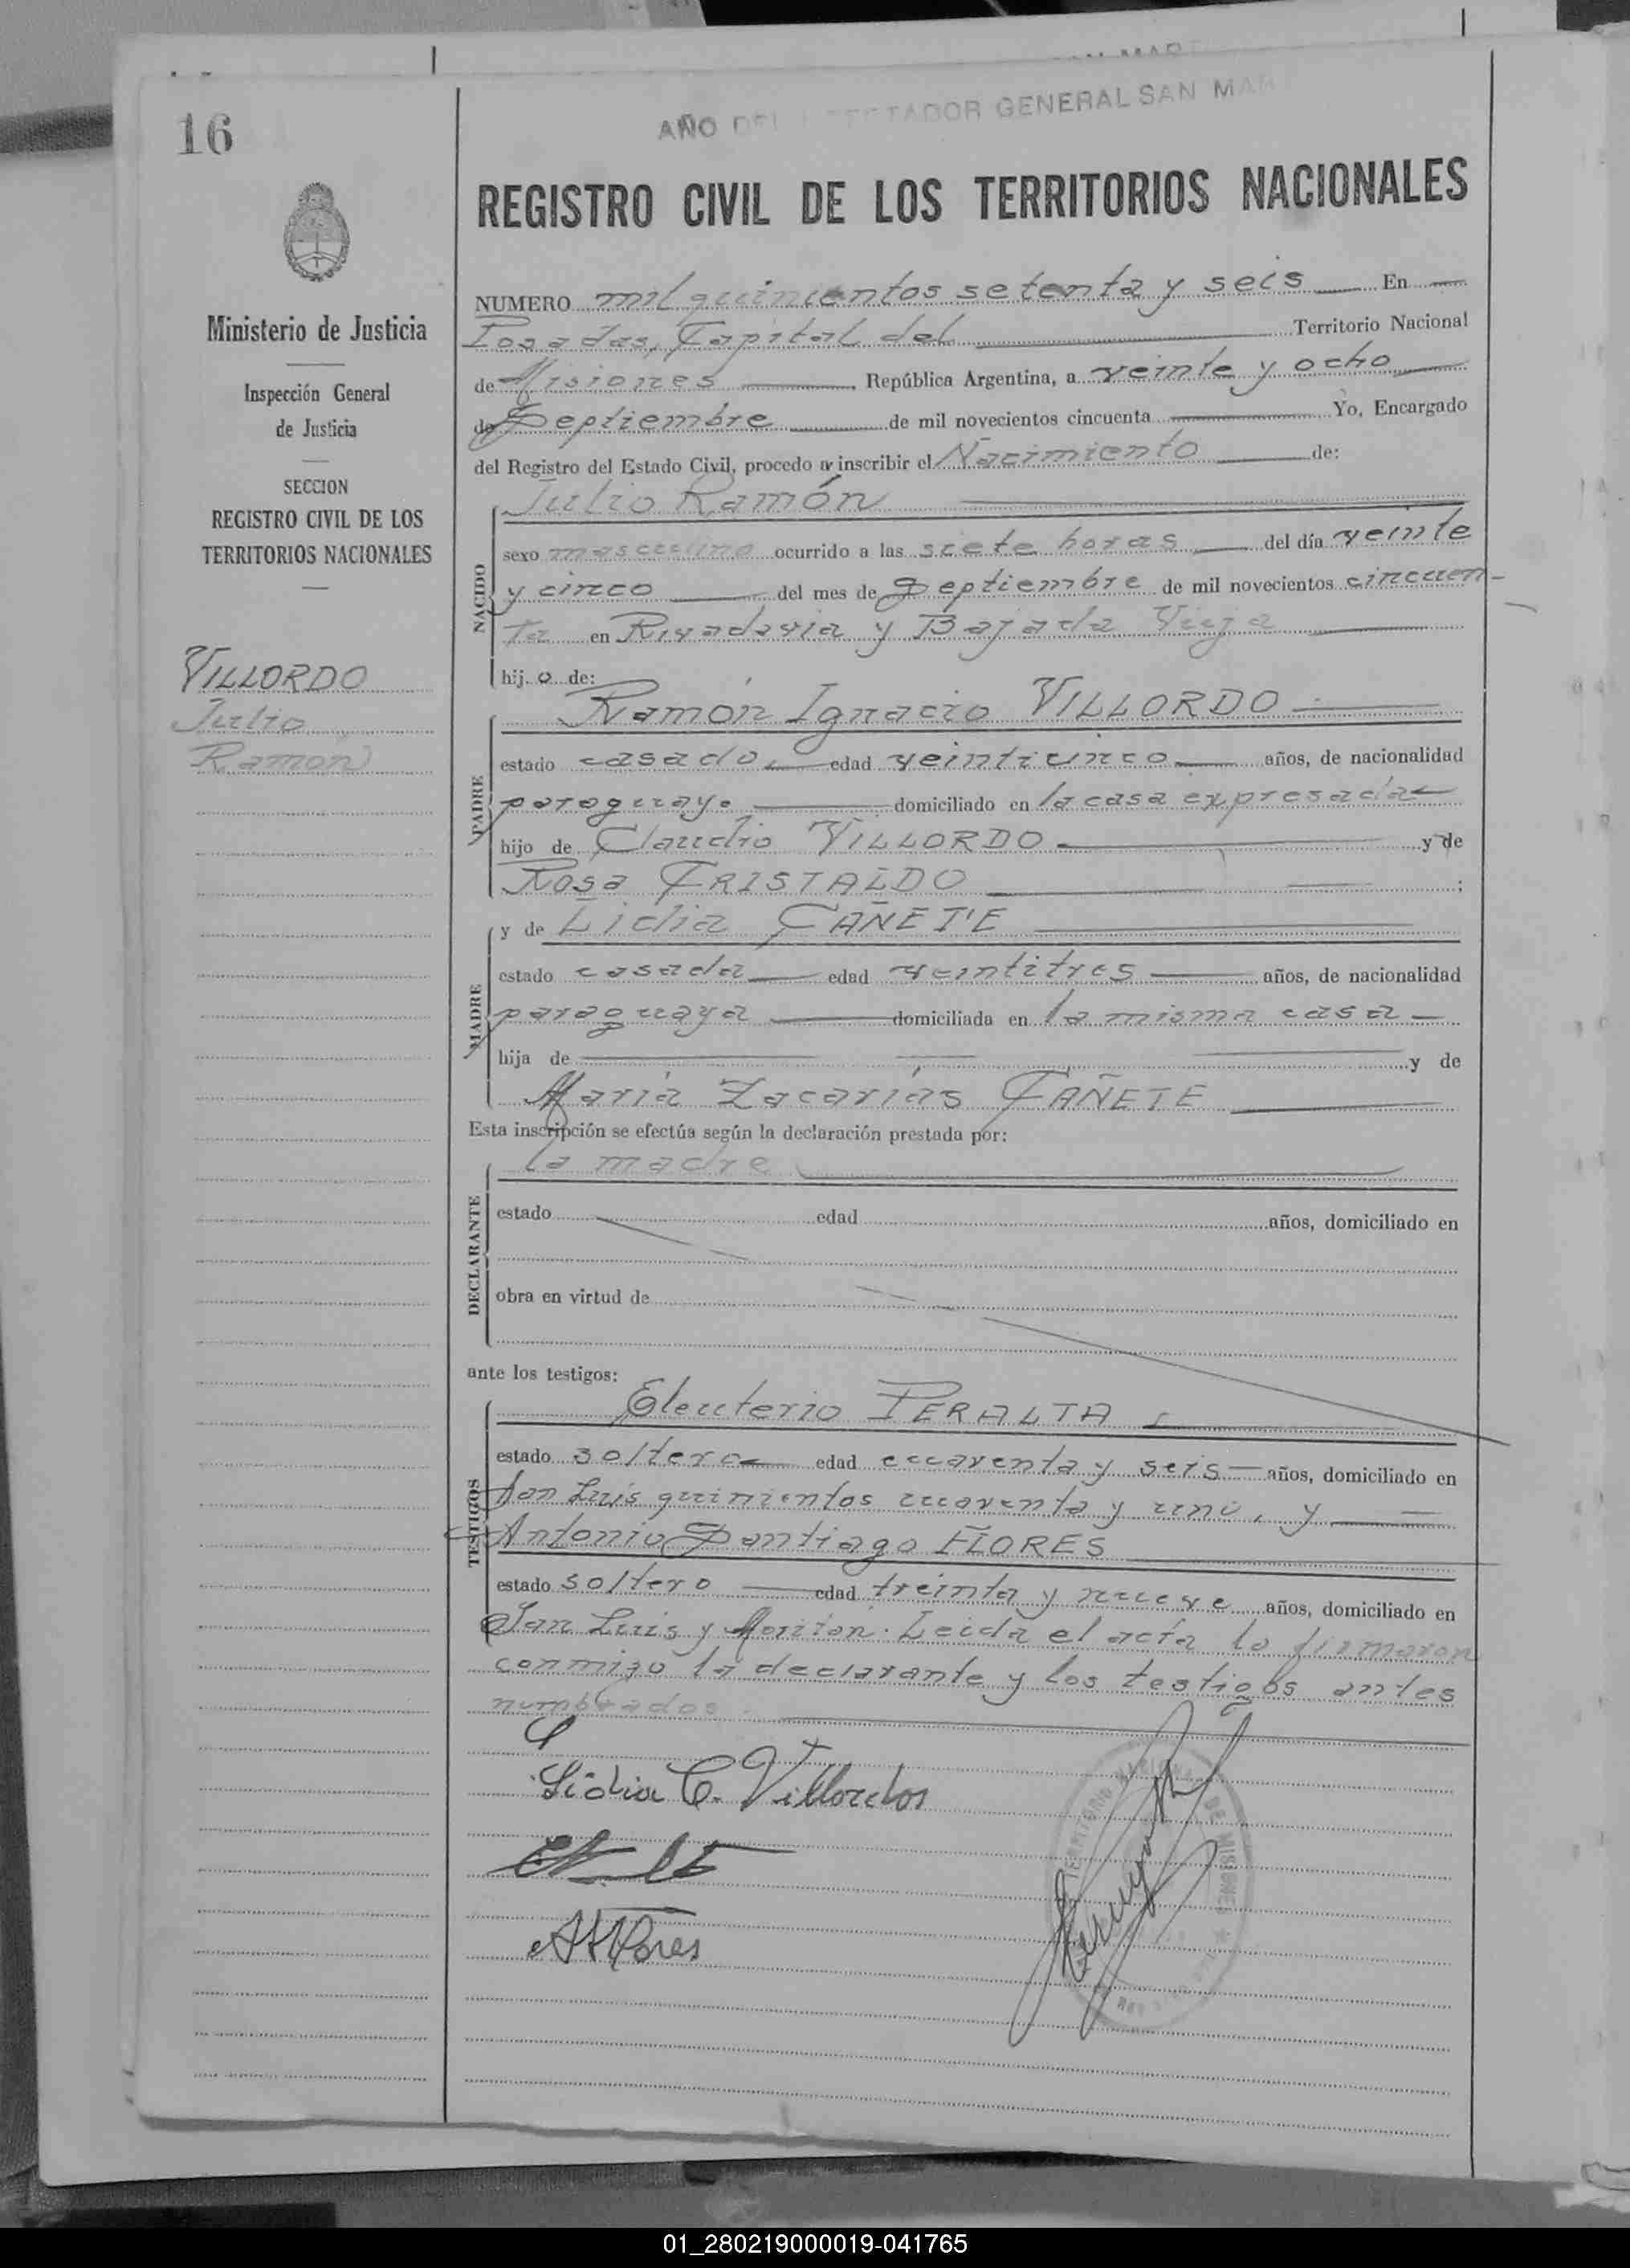 AÑO DEL TADOR GENERAL SAN MAR
16
REGISTRO CIVIL DE LOS TERRITORIOS NACIONALES
Ministerio de Justicia
Inspección General
de Justicia
SECCION
REGISTRO CIVIL DE LOS
TERRITORIOS NACIONALES
VILLORDO
Julio
Ramón
NUMERO mil quinientos setenta y seis En
Posadas, Capital del Territorio Nacional
de Misiones República Argentina, a veinte y ocho
de Septiembre de mil novecientos cincuenta Yo, Encargado
del Registro del Estado Civil, procedo a inscribir el Nacimiento de:
NACIDO
Julio Ramón
sexo masculino ocurrido a las siete horas del día veinte
y cinco del mes de Septiembre de mil novecientos cincuen-
ta en Rivadavia y Bajada Vieja
hijo de:
PADRE
Ramón Ignacio VILLORDO
estado casado edad veinticinco años, de nacionalidad
paraguayo domiciliado en la casa expresada
hijo de Claudio VILLORDO y de
Rosa CRISTALDO ;
MADRE
y de Lidia CAÑETE
estado casada edad veintitres años, de nacionalidad
paraguaya domiciliada en la misma casa
hija de y de
María Zacarías CAÑETE
Esta inscripción se efectúa según la declaración prestada por:
DECLARANTE
la madre
estado edad años, domiciliado en
obra en virtud de
ante los testigos:
TESTIGOS
Eleuterio PERALTA
estado soltero edad cuarenta y seis años, domiciliado en
San Luis quinientos cuarenta y uno, y
Antonio Santiago FLORES
estado soltero edad treinta y nueve años, domiciliado en
San Luis y Moritán. Leída el acta la firmaron
conmigo la declarante y los testigos antes
nombrados.
Lidia C. Villordos
TERRITORIO NACIONAL DE MISIONES
A S Flores
01_280219000019-041765